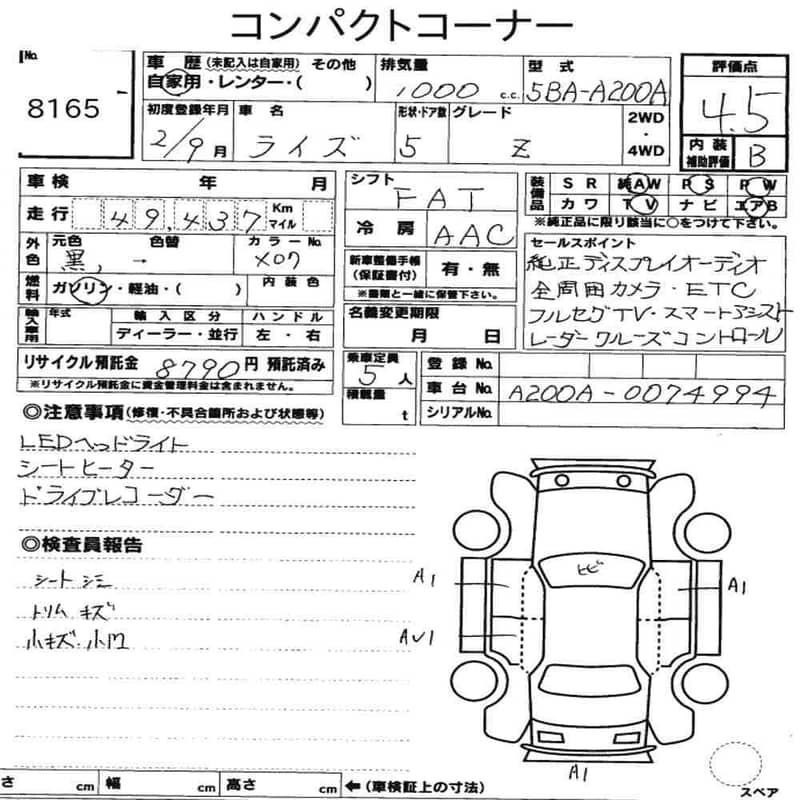 コンパクトコーナー
No.
8165
車歴 (未記入は自家用) その他
自家用・レンター・( )
排気量
1000 c.c.
型式
5BA-A200A
評価点
4.5
内装補助評価 B
初度登録年月
2/9月
車名
ライズ
形状・ドア数
5
グレード
Z
2WD
・
4WD
車検 年 月
走行 49,437 Km マイル
外色 元色 色替 カラーNo.
黒, → X07
燃料 ガソリン・軽油・( ) 内装色
輸入車用 年式 輸入区分 ハンドル
ディーラー・並行 左・右
リサイクル預託金 8790円 預託済み
※リサイクル預託金に資金管理料金は含まれません。
シフト
FAT
冷房 AAC
新車整備手帳(保証書付) 有・無
※書類と一緒に保管下さい。
名義変更期限
月 日
乗車定員
5人
積載量
t
装備品 SR 純AW PS PW
カワ TV ナビ エアB
※純正品に限り該当に○をつけて下さい。
セールスポイント
純正ディスプレイオーディオ
全周囲カメラ・ETC
フルセグTV・スマートアシスト
レーダークルーズコントロール
登録No.
車台No. A200A-0074994
シリアルNo.
◎注意事項(修復・不具合箇所および状態等)
LEDヘッドライト
シートヒーター
ドライブレコーダー
◎検査員報告
シートシミ
トリムキズ
小キズ・小凹
ヒビ
A1
A1
AU1
A1
スペア
さ cm 幅 cm 高さ cm ←(車検証上の寸法)